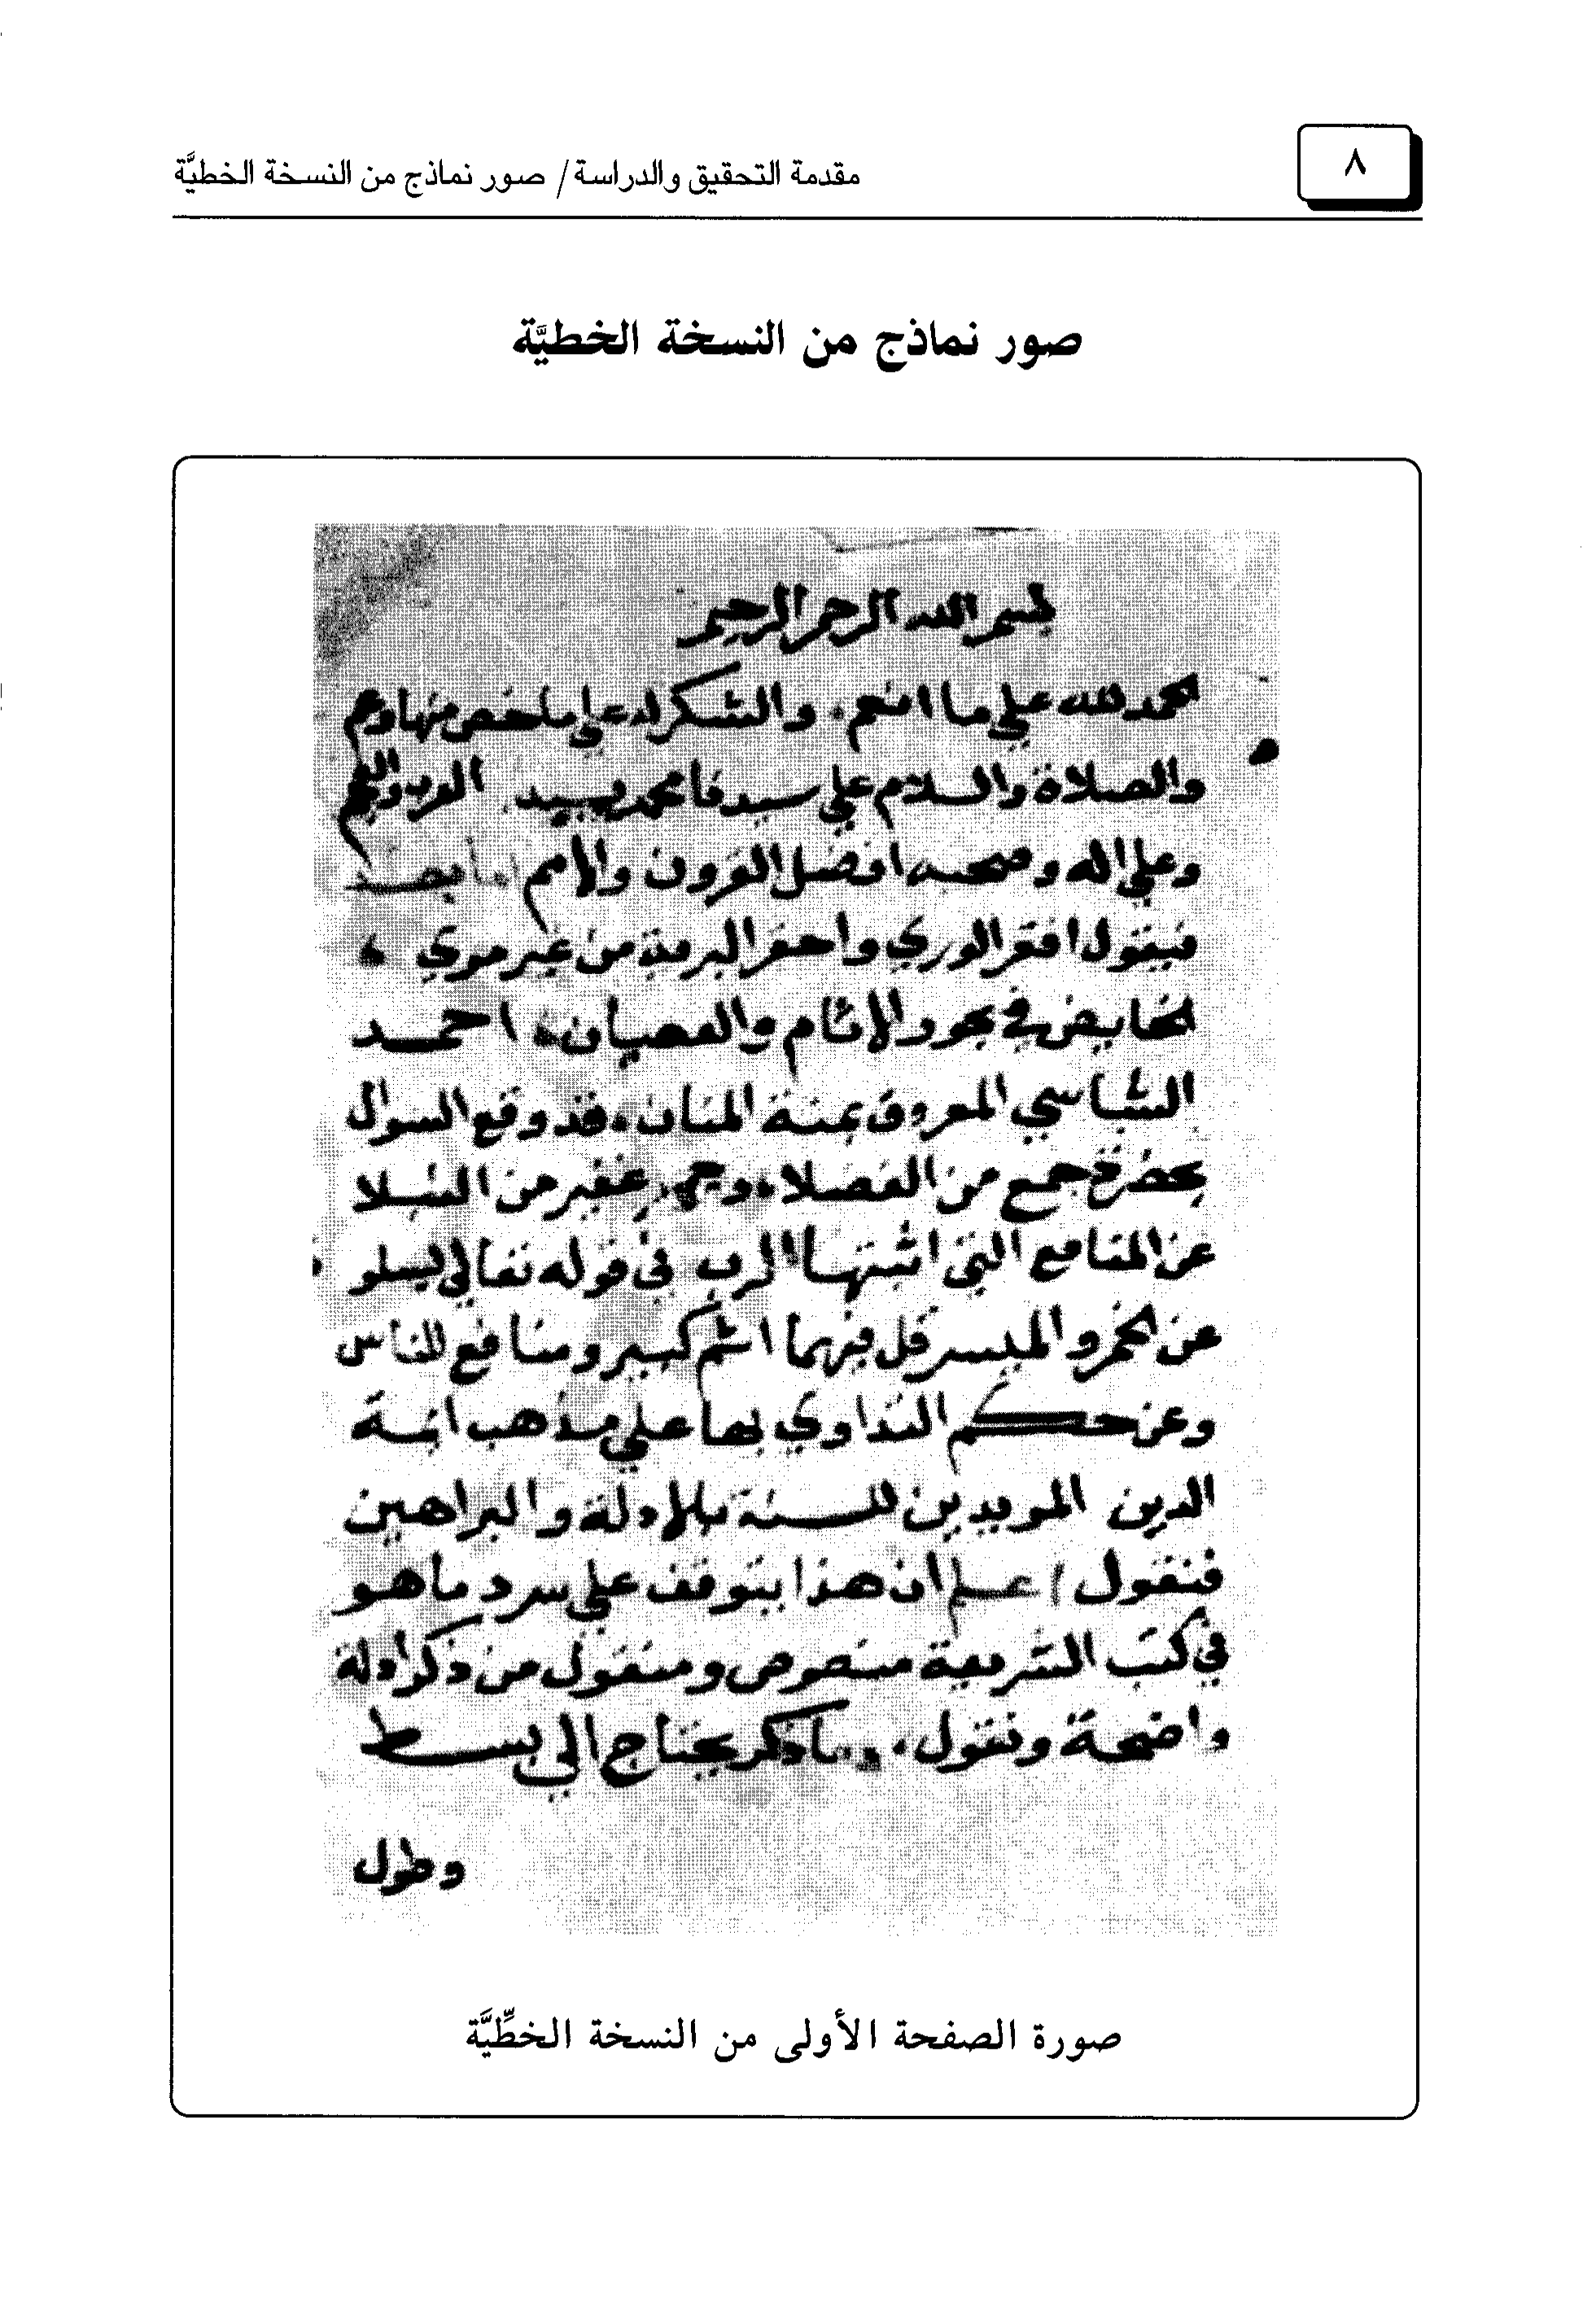 ٨
مقدمة التحقيق والدراسة / صور نماذج من النسخة الخطيَّة
صور نماذج من النسخة الخطيَّة
بسم الله الرحمن الرحيم
الحمد لله علي ما انعم والشكر له علي ما خص منها وعم
والصلاة والسلام علي سيدنا محمد سيد العرب والعجم
وعلي اله وصحبه افضل القرون والامم اما بعد
فيقول افقر الوري واحقر البرية من غير مري
الخايض في بحور الاثام والعصيان احمد
الشباسي المعروف بمنة المنان قد وقع السوال
بحضرة جمع من الفضلا وجم غفير من النبلا
عن المنافع التي اثبتها الرب في قوله تعالي يسلو
عن الخمر والميسر قل فيهما اثم كبير ومنافع للناس
وعن حكم التداوي بها علي مذهب ايمة
الدين المويدين للسنة بالادلة والبراهين
فنقول اعلم ان هذا يتوقف علي سرد ما هو
في كتب الشريعة منصوص ومنقول من ذكر ادلة
واضحة ونقول وما ذكر يحتاج الي بسط
وطول
صورة الصفحة الأولى من النسخة الخطِّيَّة